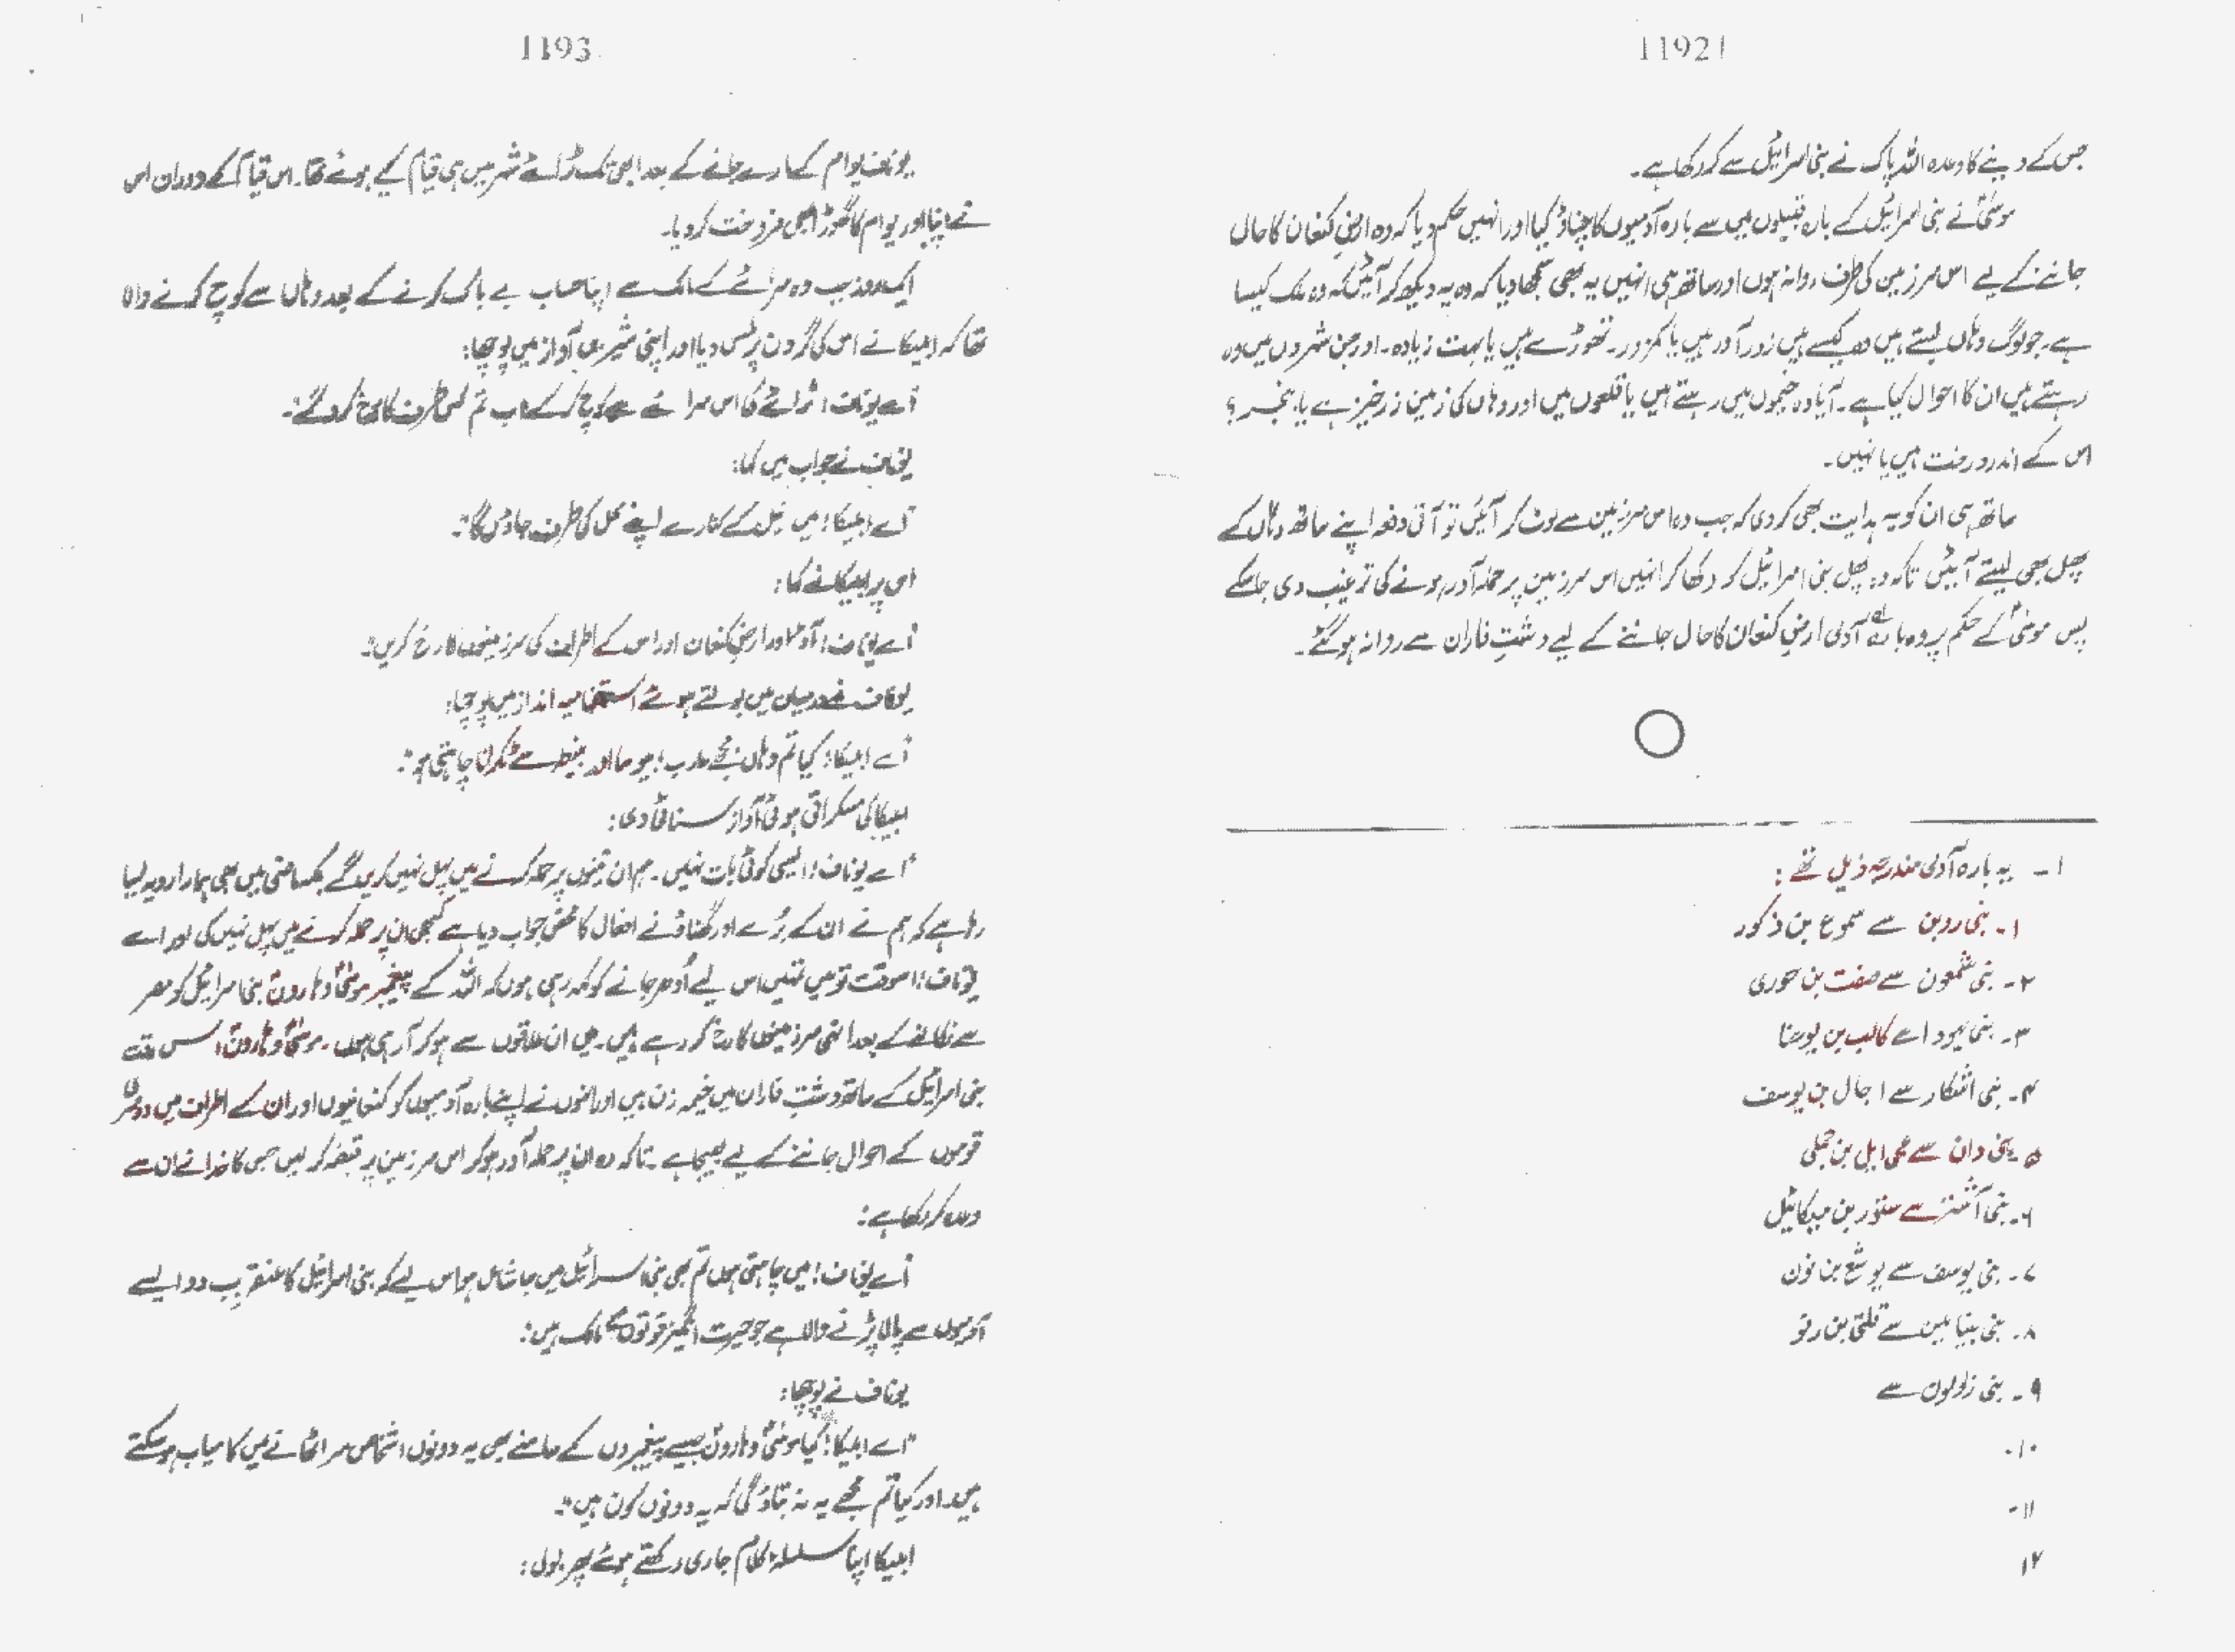 1192
جس کے دینے کا وعدہ اللہ پاک نے بنی اسرائیل سے کر رکھا ہے۔
موسیٰؑ نے بنی اسرائیل کے بارہ قبیلوں میں سے بارہ آدمیوں کا چناؤ کیا اور انہیں حکم دیا کہ وہ ارضِ کنعان کا حال
جاننے کے لیے اس سرزمین کی طرف روانہ ہوں اور ساتھ ہی انہیں یہ بھی سمجھا دیا کہ وہ یہ دیکھ کر آئیں کہ وہ ملک کیسا
ہے۔ جو لوگ وہاں بستے ہیں وہ کیسے ہیں زور آور ہیں یا کمزور۔ تھوڑے ہیں یا بہت زیادہ۔ اور جن شہروں میں وہ
رہتے ہیں ان کا احوال کیا ہے۔ آیا وہ خیموں میں رہتے ہیں یا قلعوں میں اور وہاں کی زمین زرخیز ہے یا بنجر؟
اس کے اندر درخت ہیں یا نہیں۔
ساتھ ہی ان کو یہ ہدایت بھی کر دی کہ جب وہ اس سرزمین سے لوٹ کر آئیں تو آتی دفعہ اپنے ساتھ وہاں کے
پھل بھی لیتے آئیں تاکہ وہ پھل بنی اسرائیل کو دکھا کر انہیں اس سرزمین پر حملہ آور ہونے کی ترغیب دی جا سکے
پس موسیٰؑ کے حکم پر وہ بارہ آدمی ارضِ کنعان کا حال جاننے کے لیے دشتِ فاران سے روانہ ہو گئے۔
۱۔ یہ بارہ آدمی مندرجہ ذیل تھے:
۱۔ بنی روبن سے سموع بن ذکور
۲۔ بنی شمعون سے صفت بن حوری
۳۔ بنی یہودا سے کالب بن یوحنا
۴۔ بنی اشکار سے اجال بن یوسف
۵۔ بنی دان سے عمی ایل بن جملی
۶۔ بنی آشتر سے ستور بن میکائیل
۷۔ بنی یوسف سے یوشع بن نون
۸۔ بنی بنیامین سے فلتی بن رفو
۹۔ بنی زلولون سے
۱۰۔
۱۱۔
۱۲
1193
یوناف یوام کے مارے جانے کے بعد ابھی تک ژائے شہر میں ہی قیام کیے ہوئے تھا۔ اس قیام کے دوران اس
نے اپنا اور یوام کا گھوڑا بھی فروخت کر دیا۔
ایک روز جب وہ سرائے کے مالک سے اپنا حساب بے باک کرنے کے بعد وہاں سے کوچ کرنے والا
تھا کہ ابلیکا نے اس کی گردن پر لمس دیا اور اپنی شیریں آواز میں پوچھا:
"اے یوناف! ژائے کی اس سرائے سے کوچ کر کے اب تم کس طرف کا رخ کرو گے"۔
یوناف نے جواب میں کہا:
"اے ابلیکا! میں نیل کے کنارے اپنے محل کی طرف جاؤں گا"۔
اس پر ابلیکا نے کہا:
"اے یوناف! آؤ اور ارضِ کنعان اور اس کے اطراف کی سرزمینوں کا رخ کریں"۔
یوناف نے درمیان میں بولتے ہوئے استفہامیہ انداز میں پوچھا:
"اے ابلیکا! کیا تم وہاں مجھے عارب! بیوسا اور بنیطہ سے ٹکرانا چاہتی ہو"۔
ابلیکا کی مسکراتی ہوئی آواز سنائی دی:
"اے یوناف! ایسی کوئی بات نہیں۔ ہم ان تینوں پر حملہ کرنے میں پہل نہیں کریں گے بلکہ ماضی میں بھی ہمارا رویہ ایسا
رہا ہے کہ ہم نے ان کے بُرے اور گھناؤنے افعال کا محض جواب دیا ہے کبھی ان پر حملہ کرنے میں پہل نہیں کی اور اے
یوناف! اس وقت تو میں تمہیں اس لیے اُدھر جانے کو کہہ رہی ہوں کہ اللہ کے پیغمبر موسیٰؑ و ہارونؑ بنی اسرائیل کو مصر
سے نکالنے کے بعد انہی سرزمینوں کا رخ کر رہے ہیں۔ میں ان علاقوں سے ہو کر آ رہی ہوں۔ موسیٰؑ و ہارونؑ اس وقت
بنی اسرائیل کے ساتھ دشتِ فاران میں خیمہ زن ہیں اور انہوں نے اپنے بارہ آدمیوں کو کنعانیوں اور ان کے اطراف میں دوسری
قوموں کے احوال جاننے کے لیے بھیجا ہے۔ تاکہ وہ ان پر حملہ آور ہو کر اس سرزمین پر قبضہ کر لیں جس کا خدا نے ان سے
وعدہ کر رکھا ہے:
"اے یوناف! میں چاہتی ہوں تم بھی بنی اسرائیل میں جا شامل ہو اس لیے کہ بنی اسرائیل کا عنقریب دو ایسے
آدمیوں سے پالا پڑنے والا ہے جو حیرت انگیز قوتوں کے مالک ہیں"۔
یوناف نے پوچھا:
"اے ابلیکا! کیا موسیٰؑ و ہارونؑ جیسے پیغمبروں کے سامنے بھی یہ دونوں اشخاص سر اٹھانے میں کامیاب ہو سکتے
ہیں۔ اور کیا تم مجھے یہ نہ بتاؤ گی کہ یہ دونوں کون ہیں"۔
ابلیکا اپنا سلسلہ کلام جاری رکھتے ہوئے پھر بولی: